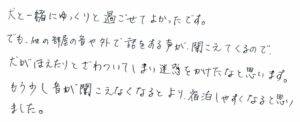 犬と一緒にゆっくりと過ごせてよかったです。
でも、他の部屋の音や外で話をする声が、聞こえてくるので、
犬がほえたりとざわついてしまい迷惑をかけたなと思います。
もう少し音が聞こえなくなるとより、宿泊しやすくなると思い
ました。